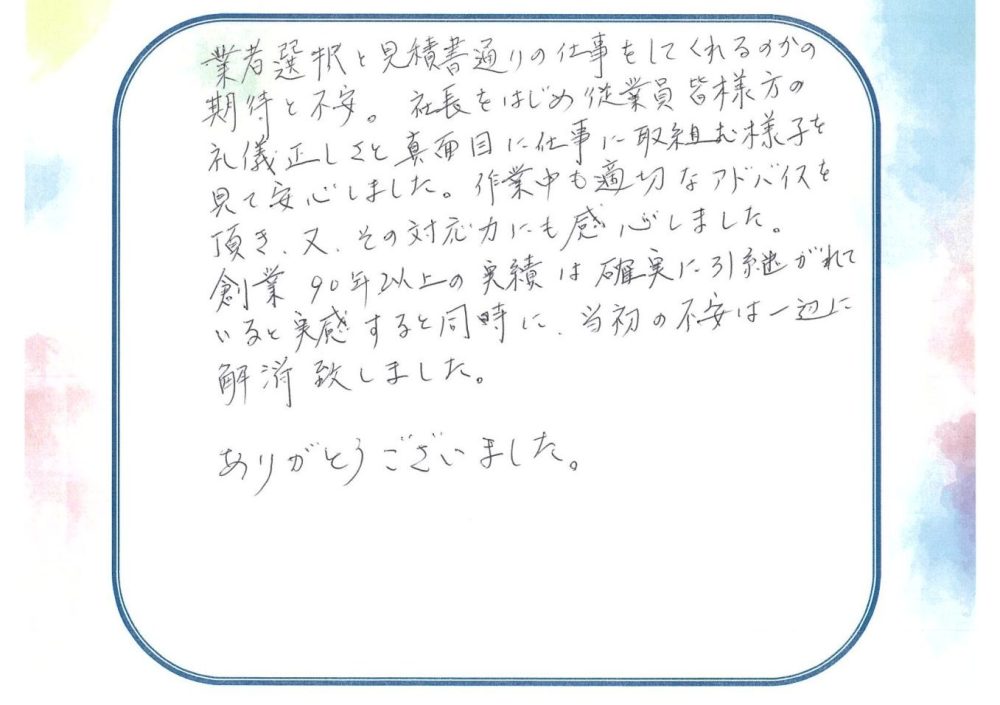 業者選択と見積書通りの仕事をしてくれるのかの
期待と不安。 社長をはじめ従業員皆様方の
礼儀正しさと真面目に仕事に取組む様子を
見て安心しました。作業中も適切なアドバイスを
頂き、又、その対応力にも感心しました。
創業90年以上の実績は確実に引継がれて
いると実感すると同時に、当初の不安は一辺に
解消致しました。
ありがとうございました。